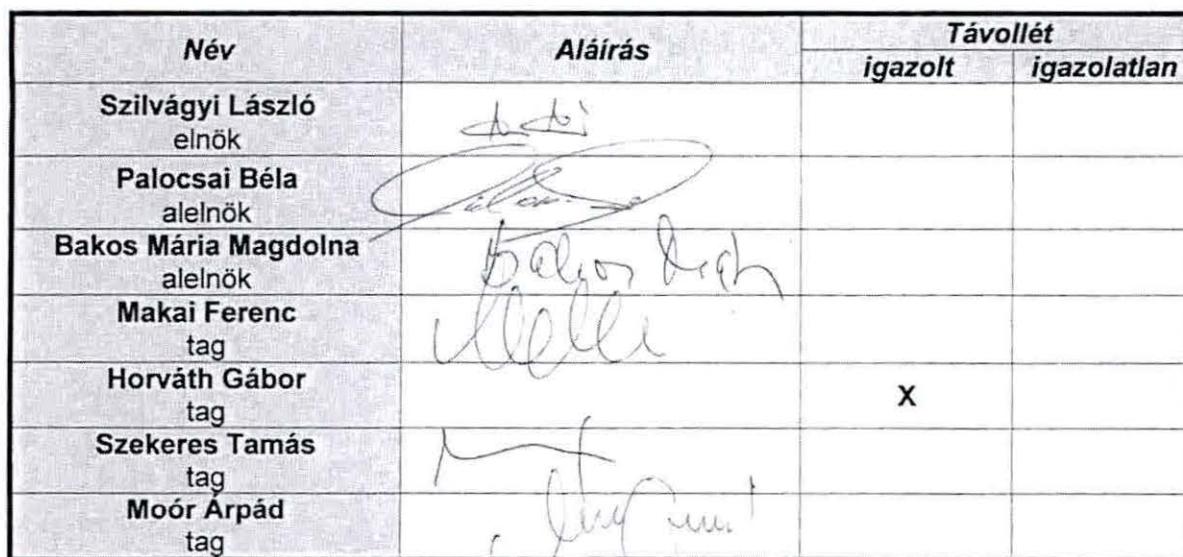 Név Aláírás Távollét
igazolt igazolatlan
Szilvágyi László
elnök
Palocsai Béla
alelnök
Bakos Mária Magdolna
alelnök
Makai Ferenc
tag
Horváth Gábor X
tag
Szekeres Tamás
tag
Moór Árpád
tag